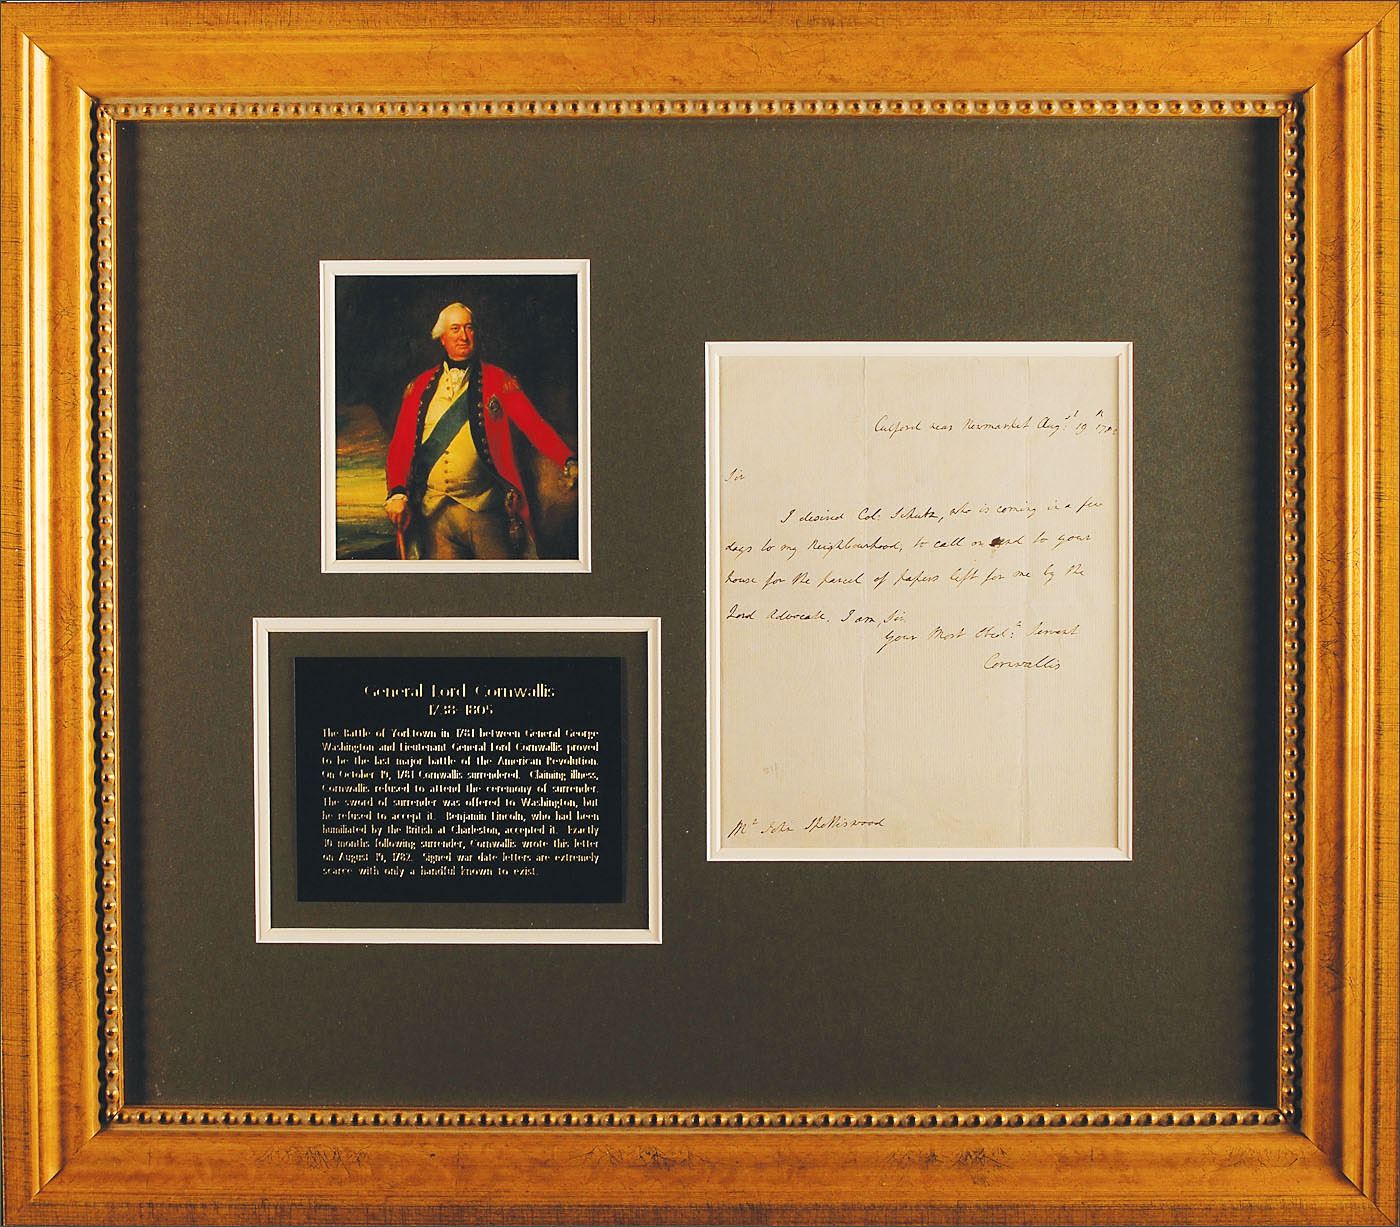 General Lord Cornwallis
1738-1805
The Battle of Yorktown in 1781 between General George
Washington and Lieutenant General Lord Cornwallis proved
to be the last major battle of the American Revolution.
On October 19, 1781 Cornwallis surrendered. Claiming illness,
Cornwallis refused to attend the ceremony of surrender.
The sword of surrender was offered to Washington, but
he refused to accept it. Benjamin Lincoln, who had been
humiliated by the British at Charleston, accepted it. Exactly
10 months following surrender, Cornwallis wrote this letter
on August 19, 1782. Signed war date letters are extremely
scarce with only a handful known to exist.
Culford near Newmarket Augst 19th 1782
Sir
I desired Col: Schutz, who is coming in a few
days to my Neighbourhood, to call or send to your
house for the parcel of papers left for me by the
Lord Advocate. I am, Sir,
Your Most Obedt Servant
Cornwallis
Mr John Spottiswood